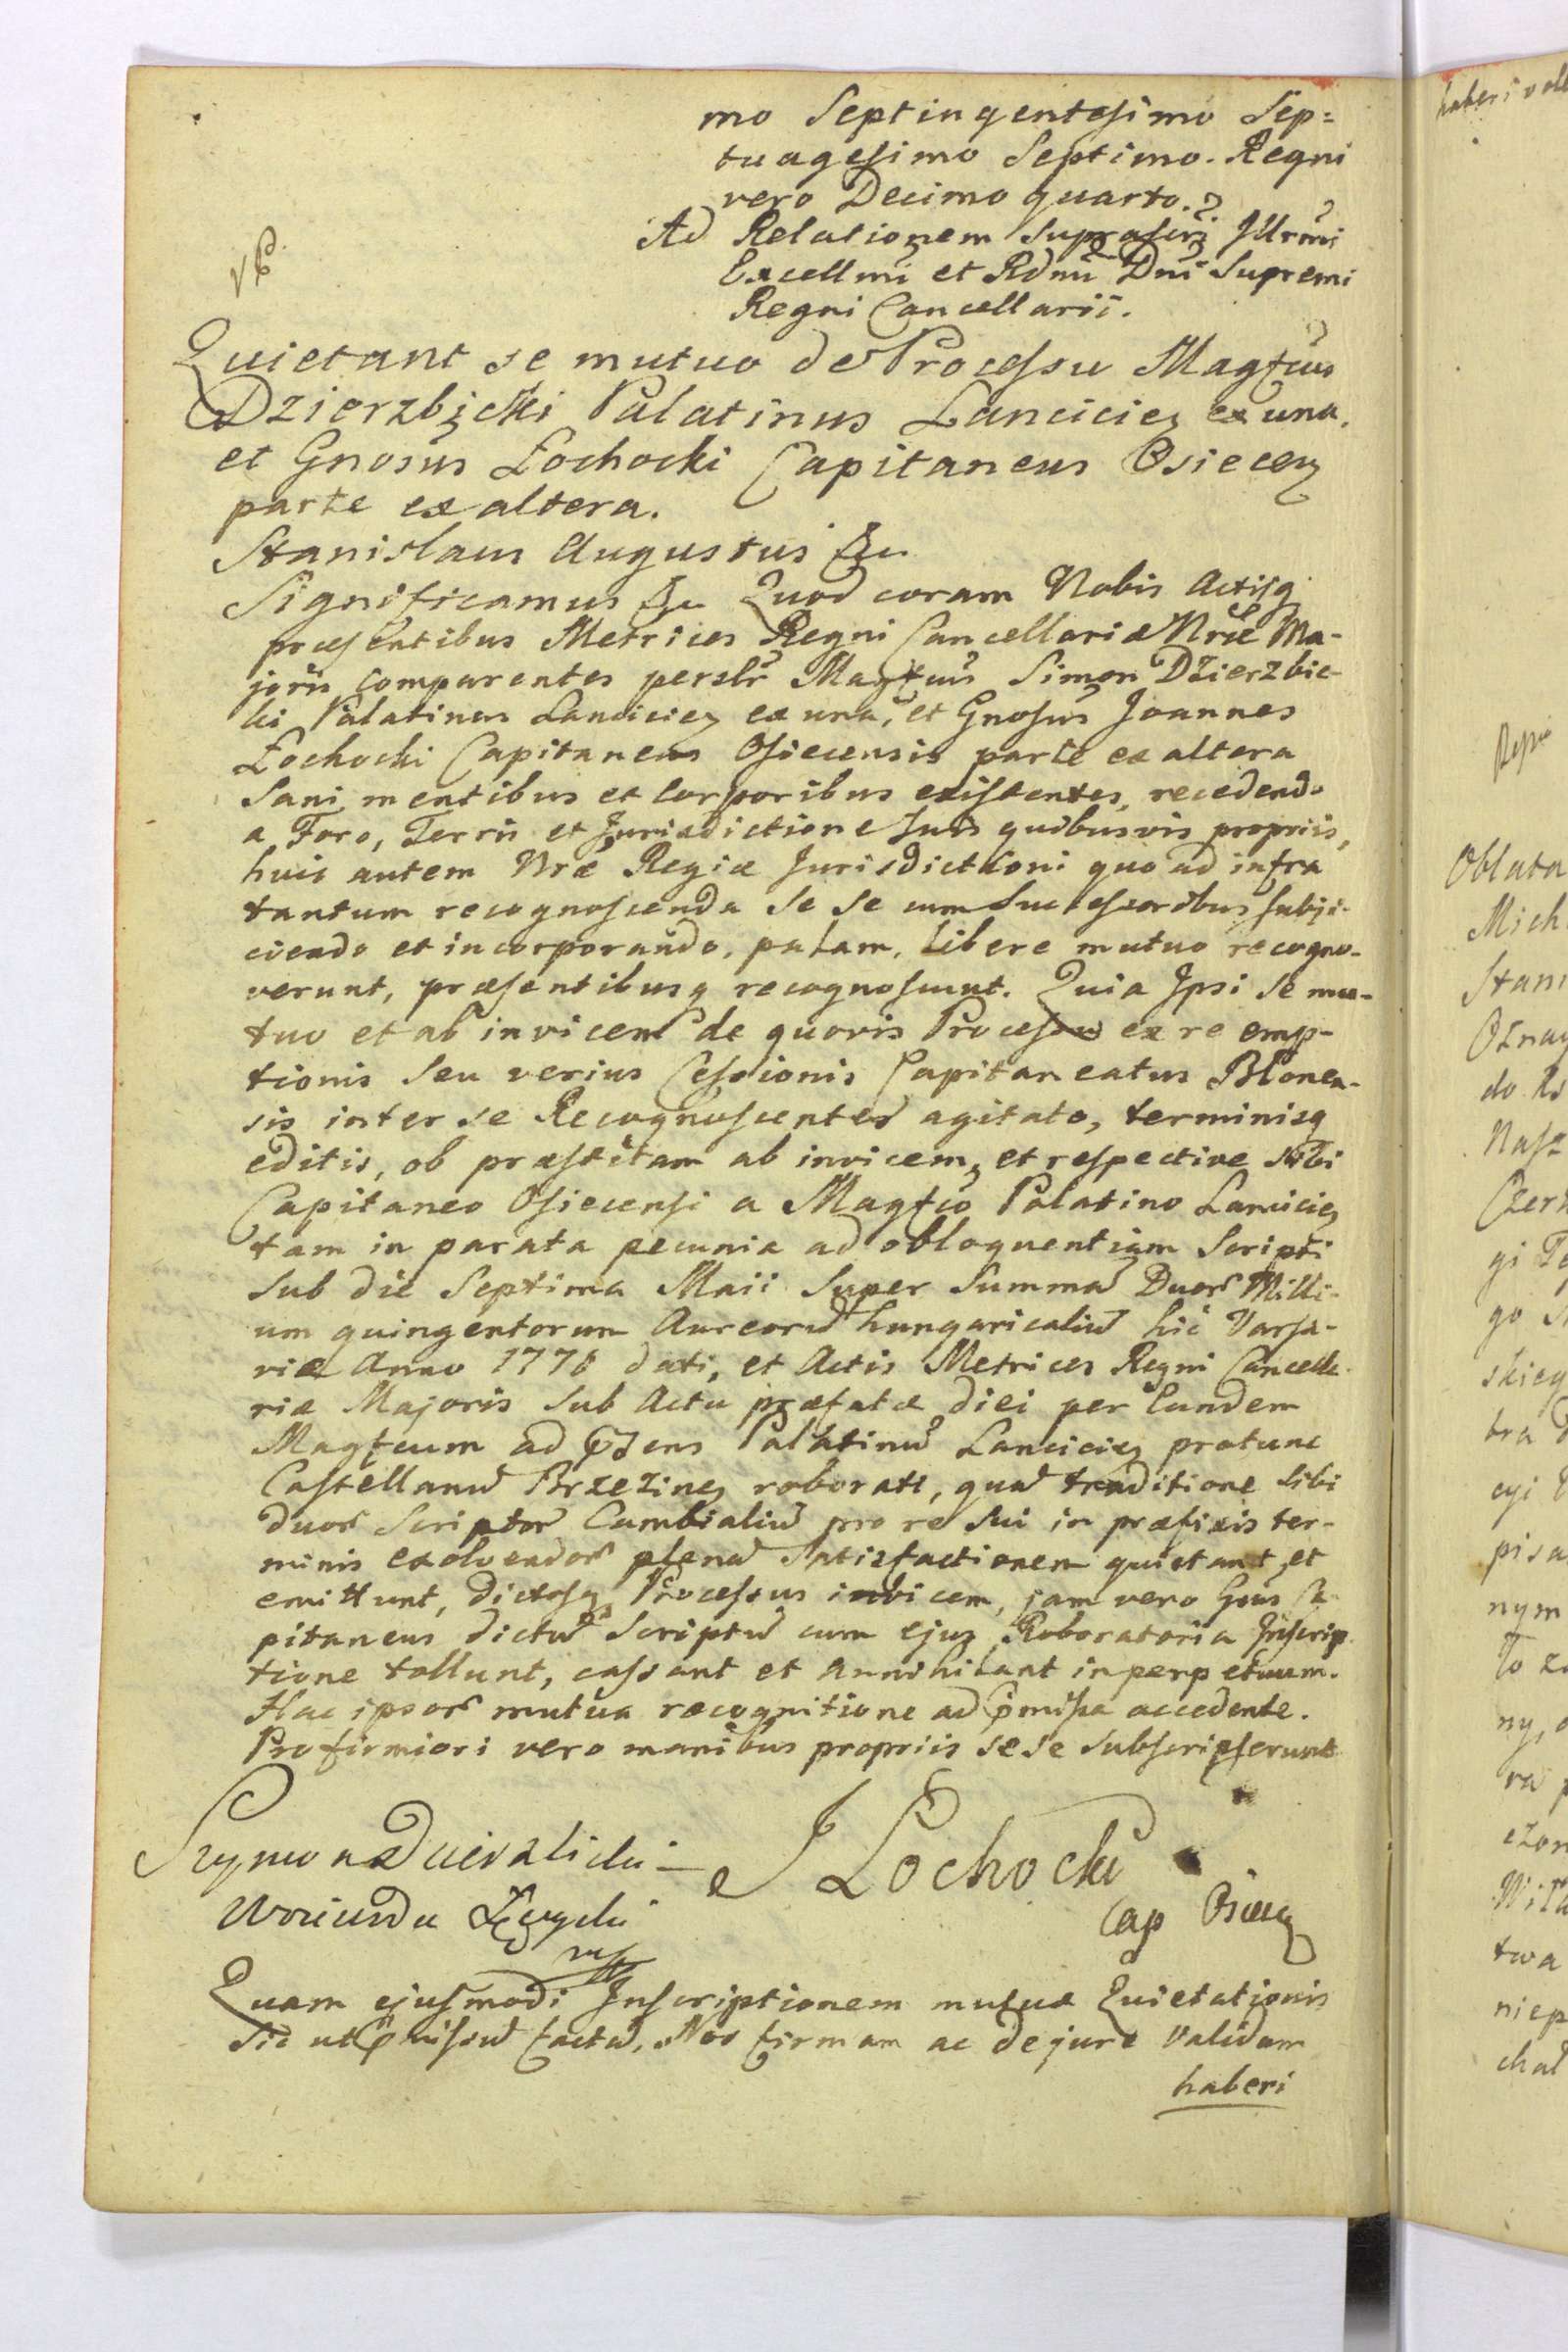 mo Septingentesimo Sep=
tuagesimo Septimo. Regni
vero Decimo quarto.
Ad Relationem Suprascri Illrmi
Excellmi et Rdmi Dni Supremi
Regni Cancellarii.
Quietant se mutuo de Processu Magfcus
Dzierzbicki Palatinus Lanciciey ex una,
et Gnosus Łochocki Capitaneus Osiecey
parte ex altera.
Stanislaus Augustus &c
Significamus &c Quod coram Nobis Actisq
præsentibus Metrices Regni Cancellariæ Nræ Ma-
joris Comparentes persltr Magfcus Simon Dzierzbic-
ki Palatinus Lanciciey ex una, et Gnosus Joannes
Łochocki Capitaneus Osiecensis parte ex altera
Sani mentibus et Corporibus existentes, recedendo
a Foro, Terris et Jurisdictione Suis quibusvis propriis,
huic autem Nræ Regiæ Jurisdictioni quo ad infra
tantum recognoscenda Se Se cum Successoribus subji-
ciendo et incorporando, palam, Libere mutuo recogno-
verunt, præsentibusq recognoscunt. Quia Ipsi Se mu-
tuo et ab invicem de quovis Processu ex re emp-
tionis Seu verius Cessionis Capitaneatus Blonen-
sis inter se Recognoscentes agitato, terminisq
editis, ob præstitam ab invicem, et respective Sibi
Capitaneo Osiecensi a Magfco Palatino Lanciciey
tam in parata pecunia ad obloquentiam Scripti
Sub die Septima Maii Super Summa Duor Milli-
um quingentorum Aureoru hungaricaliu hic Varsa-
viæ Anno 1776 dati, et Actis Metrices Regni Cancella-
riæ Majoris Sub Actu præfatæ diei per Eundem
Magfcum ad Palatinu Lanciciey protunc
Castellanu Brzeziney roborati, qua traditione Sibi
duor Scriptor Cambialiu pro re Sui in præfixis ter-
minis exolvendor plena Satisfactionem quietant, et
emittunt, Dictosq Processus invicem, jam vero Gnus Ca-
pitaneus dictu Scriptu cum ejus Roboratoria Inscrip
tione tollunt, cassant et annihilant in perpetuum.
Hac ipsor mutua recognitione ad pmissa accedente.
Pro firmiori vero manibus propriis sese subscripserunt
Szymon Dzierzbicki J Łochocki
Woiewoda Łęczycki Cap Osiecey
mpp
Quam ejusmodi Inscriptionem mutuæ Quietationis
Sic ut pmissu facta, Nos firmam ac de jure Validam
haberi